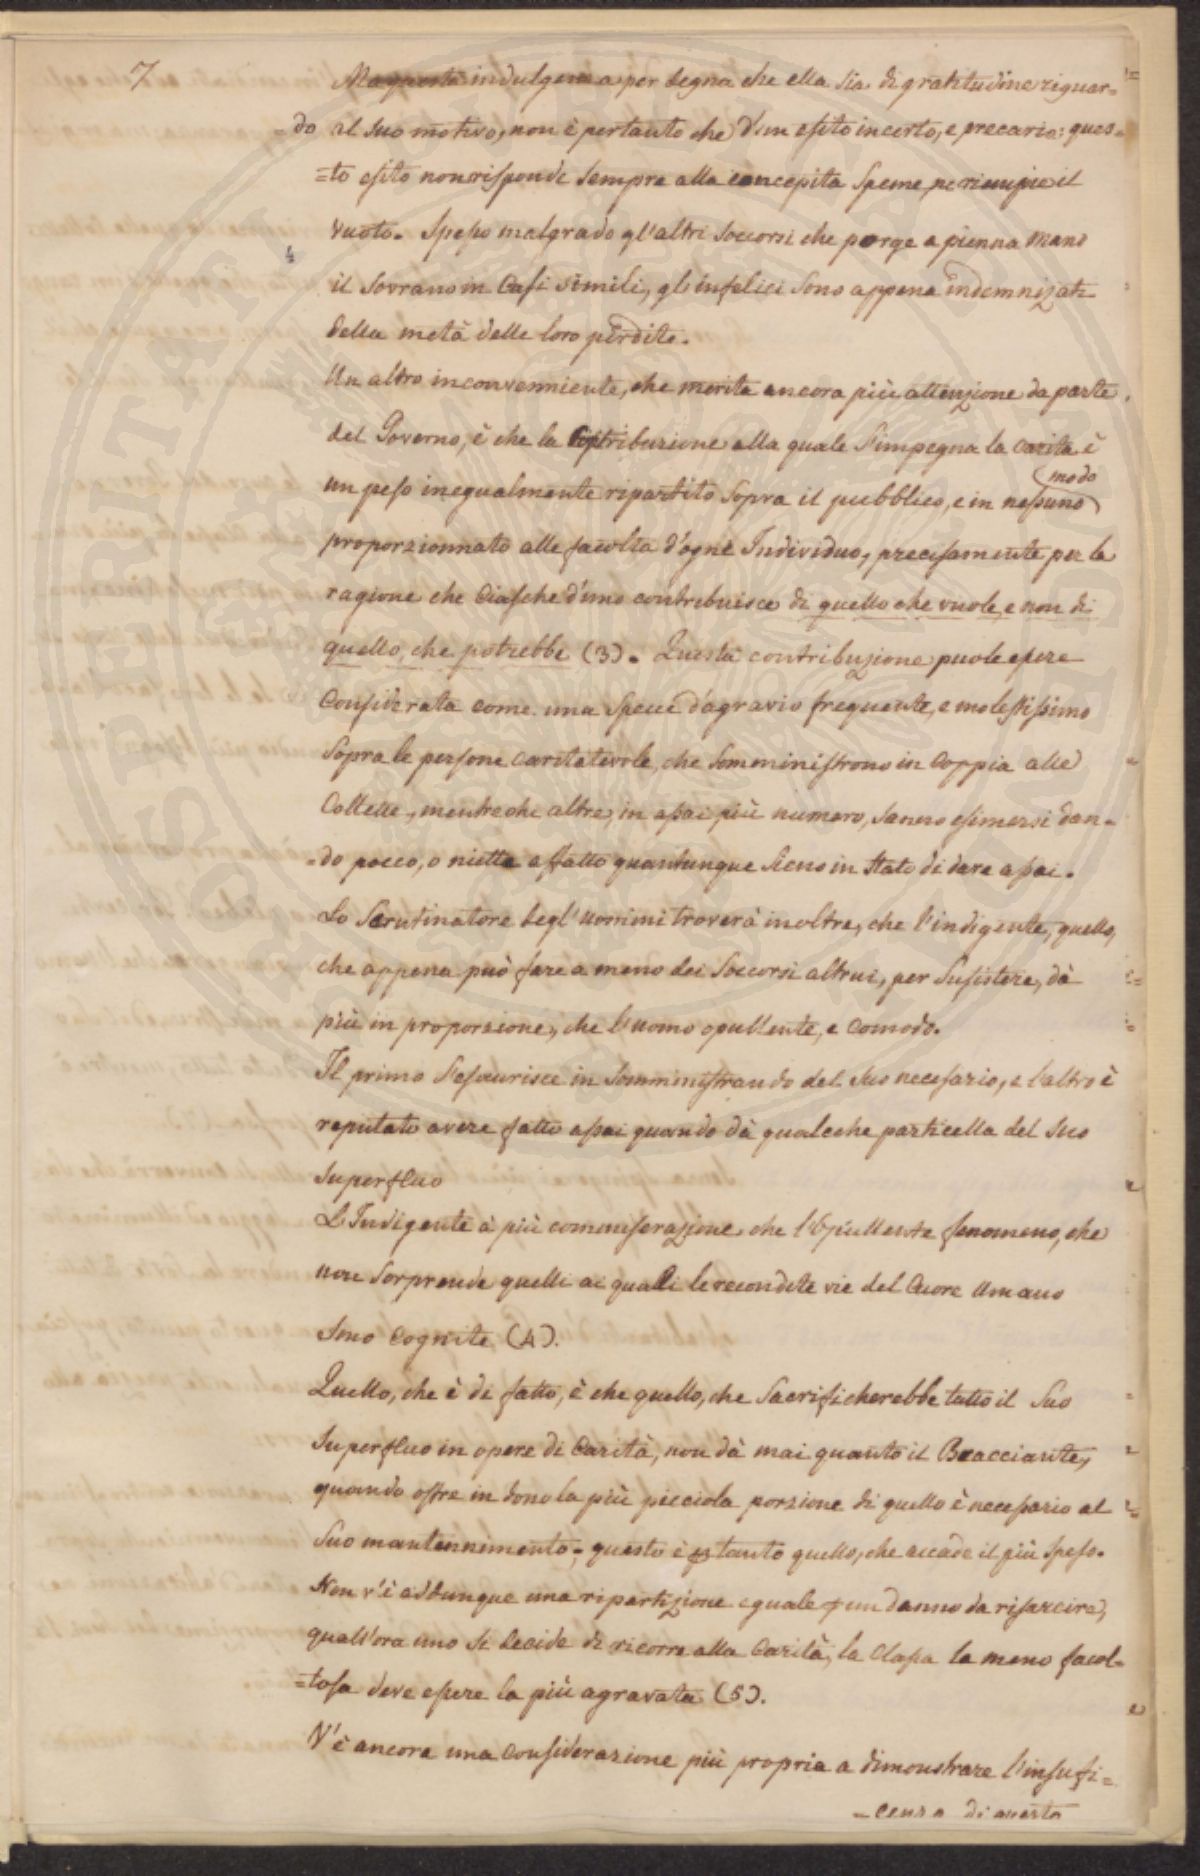 7
Ma questa indulgenza per degna che ella sia di gratitudine riguar=
=do il suo motivo, non è pertanto che d'un esito incerto, e precario: ques=
=to esito non risponde sempre alla concepita speme, ne riempie il
Vuoto. Spesso malgrado gl'altri soccorsi che porge a pienna mano
il Sovrano in Casi simili, gl'infelici sono appena indemnizati
della metà delle loro perdite.
Un altro inconvenniente, che merita ancora più attenzione da parte
del Governo, è che la Contribuzione alla quale s'impegna la carità è
un peso inegualmente ripartito sopra il pubblico, e in nessuno
modo
proporzionnato alle facolta d'ogni Individuo, precisamente per la
ragione che Ciasched'uno contribuisce di quello che vuole, e non di
quello, che potrebbe (3). Questa contribuzione puole essere
Considerata come una specie d'agravio frequente, e molestissimo
sopra le persone caritatevole, che somministrono in Coppia alle
Collette, mentreche altre, in assai più numero, sanno esimersi dan=
=do pocco, o niette affatto quantunque sieno in stato di dare assai.
Lo Scrutinatore degl'uomini troverà inoltre, che l'indigente, quello,
che appena può fare a meno dei soccorsi altrui, per susistere, dà
più in proporzione, che l'uomo opullente, e Comodo.
Il primo s'esaurisce in somministrando del suo necesario, e l'altro è
reputato avere fatto assai quando dà qualche particella del suo
superfluo
L'Indigente à più commiserazione che l'Opullente fenomeno, che
non sorprende quelli ai quali le recondite vie del Cuore Umano
sono Cognite (4).
Quello, che è di fatto, è che quello, che sacrificherebbe tutto il suo
superfluo in opere di Carità, non dà mai quanto il Bracciante,
quando offre in dono la più picciola porzione di quello è necessario al
suo mantennimento; questo è tanto quello, che accade il più speso.
Non v'è addunque una ripartizione eguale un danno da risarcire,
quall'ora uno si decide di ricorre alla Carità, la Classa la meno facol=
=tosa deve essere la più agravata (5).
V'è ancora una Considerazione più propria a dimonstrare l'insufi=
=cenza di questo